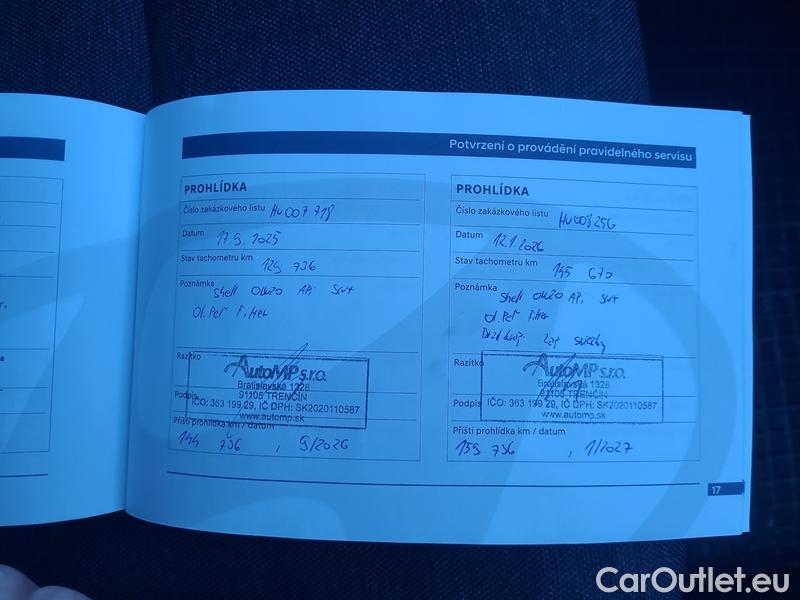 Potvrzení o provádění pravidelného servisu
PROHLÍDKA
Číslo zakázkového listu HU007718
Datum 17 9. 2025
Stav tachometru km 129 736
Poznámka Shell 0W20 API
Ol. Peť Filter
Razítko
AutoMP s.r.o.
Bratislavská 1328
91105 TRENČÍN
Podpis
IČO: 363 199 29, IČ DPH: SK2020110587
www.automp.sk
Příští prohlídka km / datum
144 736 , 9/2026
PROHLÍDKA
Číslo zakázkového listu HU008256
Datum 12.1.2026
Stav tachometru km 145 670
Poznámka Shell 0W20 API
Ol. Peť Filter
Zap sviečky
Razítko
AutoMP s.r.o.
Bratislavská 1328
91105 TRENČÍN
Podpis
IČO: 363 199 29, IČ DPH: SK2020110587
www.automp.sk
Příští prohlídka km / datum
159 736 , 1/2027
17
CarOutlet.eu